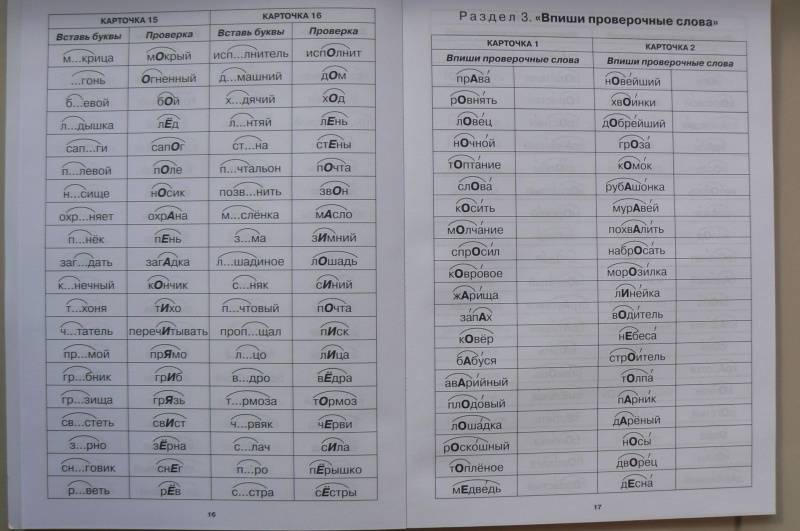 КАРТОЧКА 15 КАРТОЧКА 16
Вставь буквы Проверка Вставь буквы Проверка
м...крица мОкрый исп...лнитель испОлнит
...гонь Огненный д...машний дОм
б...евой бОй х...дячий хОд
л...дышка лЁд л...нтяй лЕнь
сап...ги сапОг ст...на стЕны
п...левой пОле п...чтальон пОчта
н...сище нОсик позв...нить звОн
охр...няет охрАна м...слёнка мАсло
п...нёк пЕнь з...ма зИмний
заг...дать загАдка л...шадиное лОшадь
к...нечный кОнчик с...няк сИний
т...хоня тИхо п...чтовый пОчта
ч...татель перечИтывать проп...щал пИск
пр...мой прЯмо л...цо лИца
гр...бник грИб в...дро вЁдра
гр...зища грЯзь т...рмоза тОрмоз
св...стеть свИст ч...рвяк чЕрви
з...рно зЁрна с...лач сИла
сн...говик снЕг п...ро пЁрышко
р...веть рЁв с...стра сЁстры
16
Раздел 3. «Впиши проверочные слова»
КАРТОЧКА 1 КАРТОЧКА 2
Впиши проверочные слова Впиши проверочные слова
прАва́ нОве́йший
рОвня́ть хвОи́нки
лОве́ц дОбре́йший
нОчно́й грОза́
тОпта́ние кОмо́к
слОва́ рубАшо́нка
кОси́ть мурАве́й
мОлча́ние похвАли́ть
спрОси́л набрОса́ть
кОвро́вое морОзи́лка
жАри́ща лИне́йка
за́пАх вОди́тель
кОвёр нЕбеса́
бАбу́ся стрОи́тель
авАри́йный тОлпа́
плОдо́вый пАрни́к
лОша́дка дАрёный
рОско́шный нОсы́
тОплёное двОре́ц
мЕдве́дь дЕсна́
17